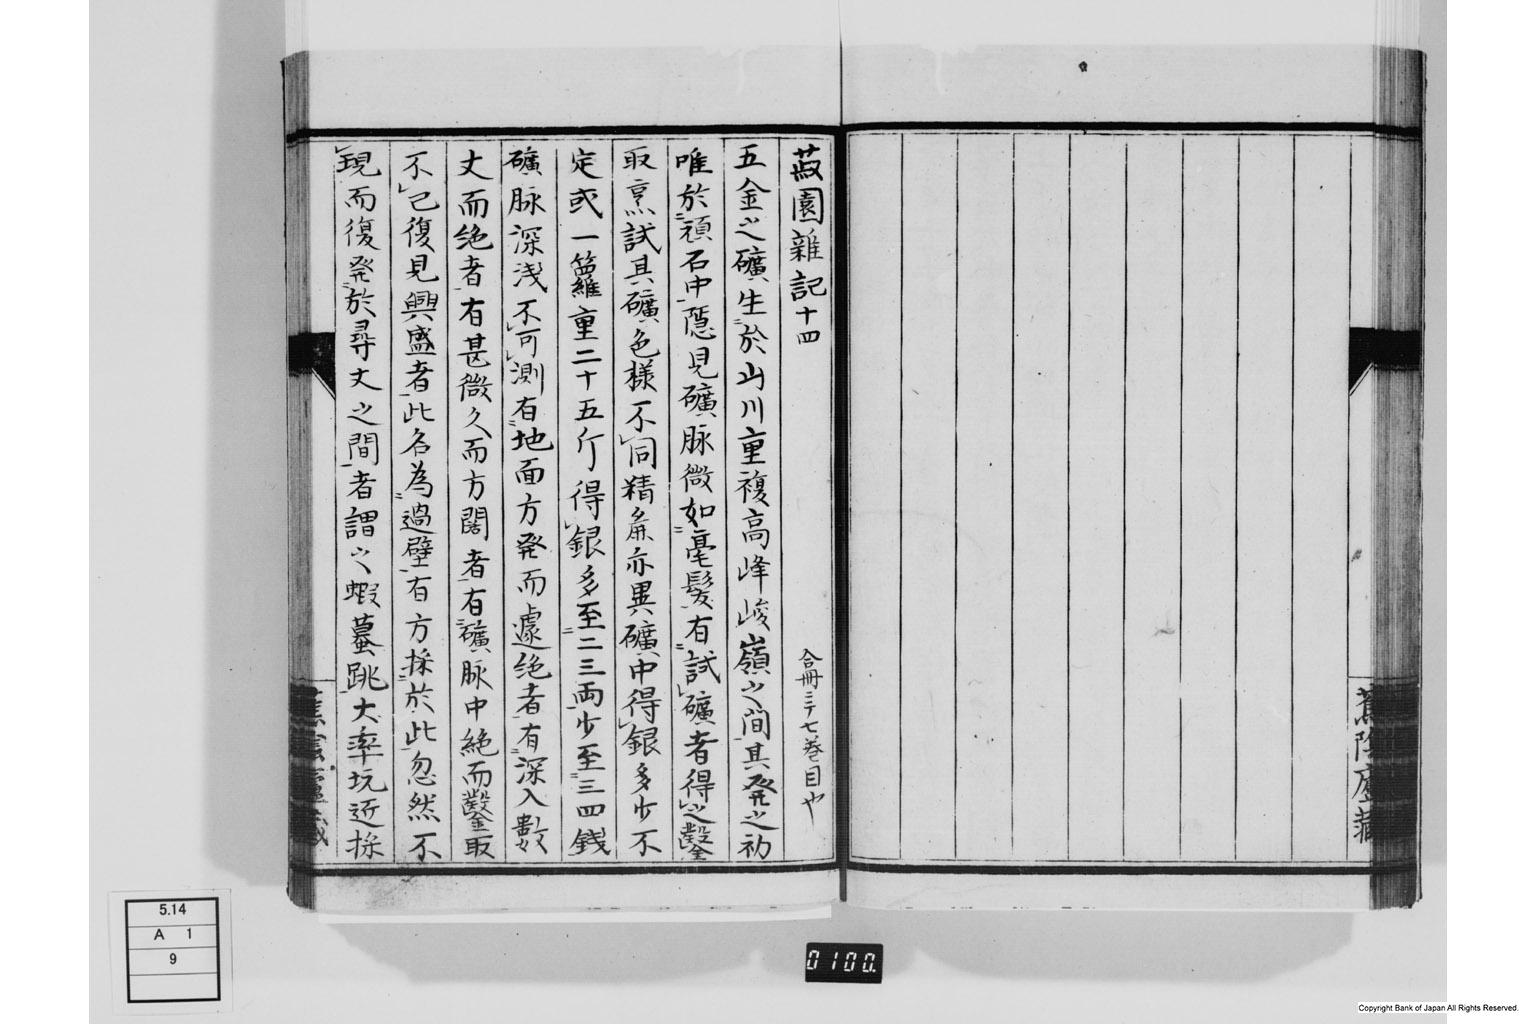 蕉陰廬蔵
菽園雜記十四
合冊三十七巻目也
五金之礦生於山川重複高峰峻嶺之間其発之初
唯於頑石中隠見礦脉微如毫髪有試礦者得之鑿
取烹試其礦色様不同精麁亦異礦中得銀多少不
定或一籮重二十五斤得銀多至二三両少至三四銭
礦脉深浅不可測有地面方発而遽绝者有深入數
丈而绝者有甚微久而方闊者有礦脉中絶而鑿取
不已復見興盛者此名為過壁有方採於此忽然不
現而復発於尋丈之間者謂之蝦蟇跳大率坑近採
蕉陰廬蔵
5.14
A 1
9
0100.
Copyright Bank of Japan All Rights Reserved.